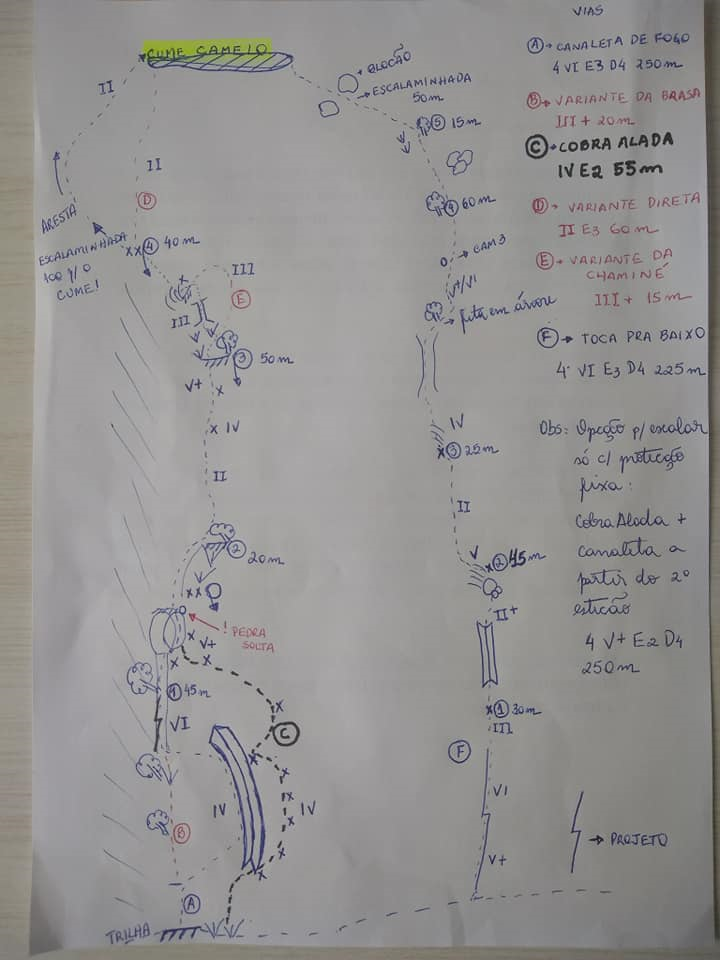 VIAS
A → CANALETA DE FOGO
4 VI E3 D4 250m
B → VARIANTE DA BRASA
III + 20m
C → COBRA ALADA
IV E2 55m
D → VARIANTE DIRETA
II E3 60m
E → VARIANTE DA
CHAMINÉ
III + 15m
F → TOCA PRA BAIXO
4° VI E3 D4 225m
Obs: Opção p/ escalar
só c/ proteção
fixa:
Cobra Alada +
canaleta a
partir do 2º
esticão
4 V+ E2 D4
250m
→ PROJETO
CUME CAMELO
II
II
D
ARESTA
ESCALAMINHADA
100 P/ O
CUME!
4 40m
III
E
III
3 50m
V+
IV
II
2 20m
! PEDRA
SOLTA
V+
1 45m
VI
C
IV
IV
B
A
TRILHA
BLOCÃO
ESCALAMINHADA
50m
5 15m
4 60m
CAM 3
V+/VI
fita em árvore
IV
3 25m
II
V
2 45m
II+
1 30m
III
F
VI
V+